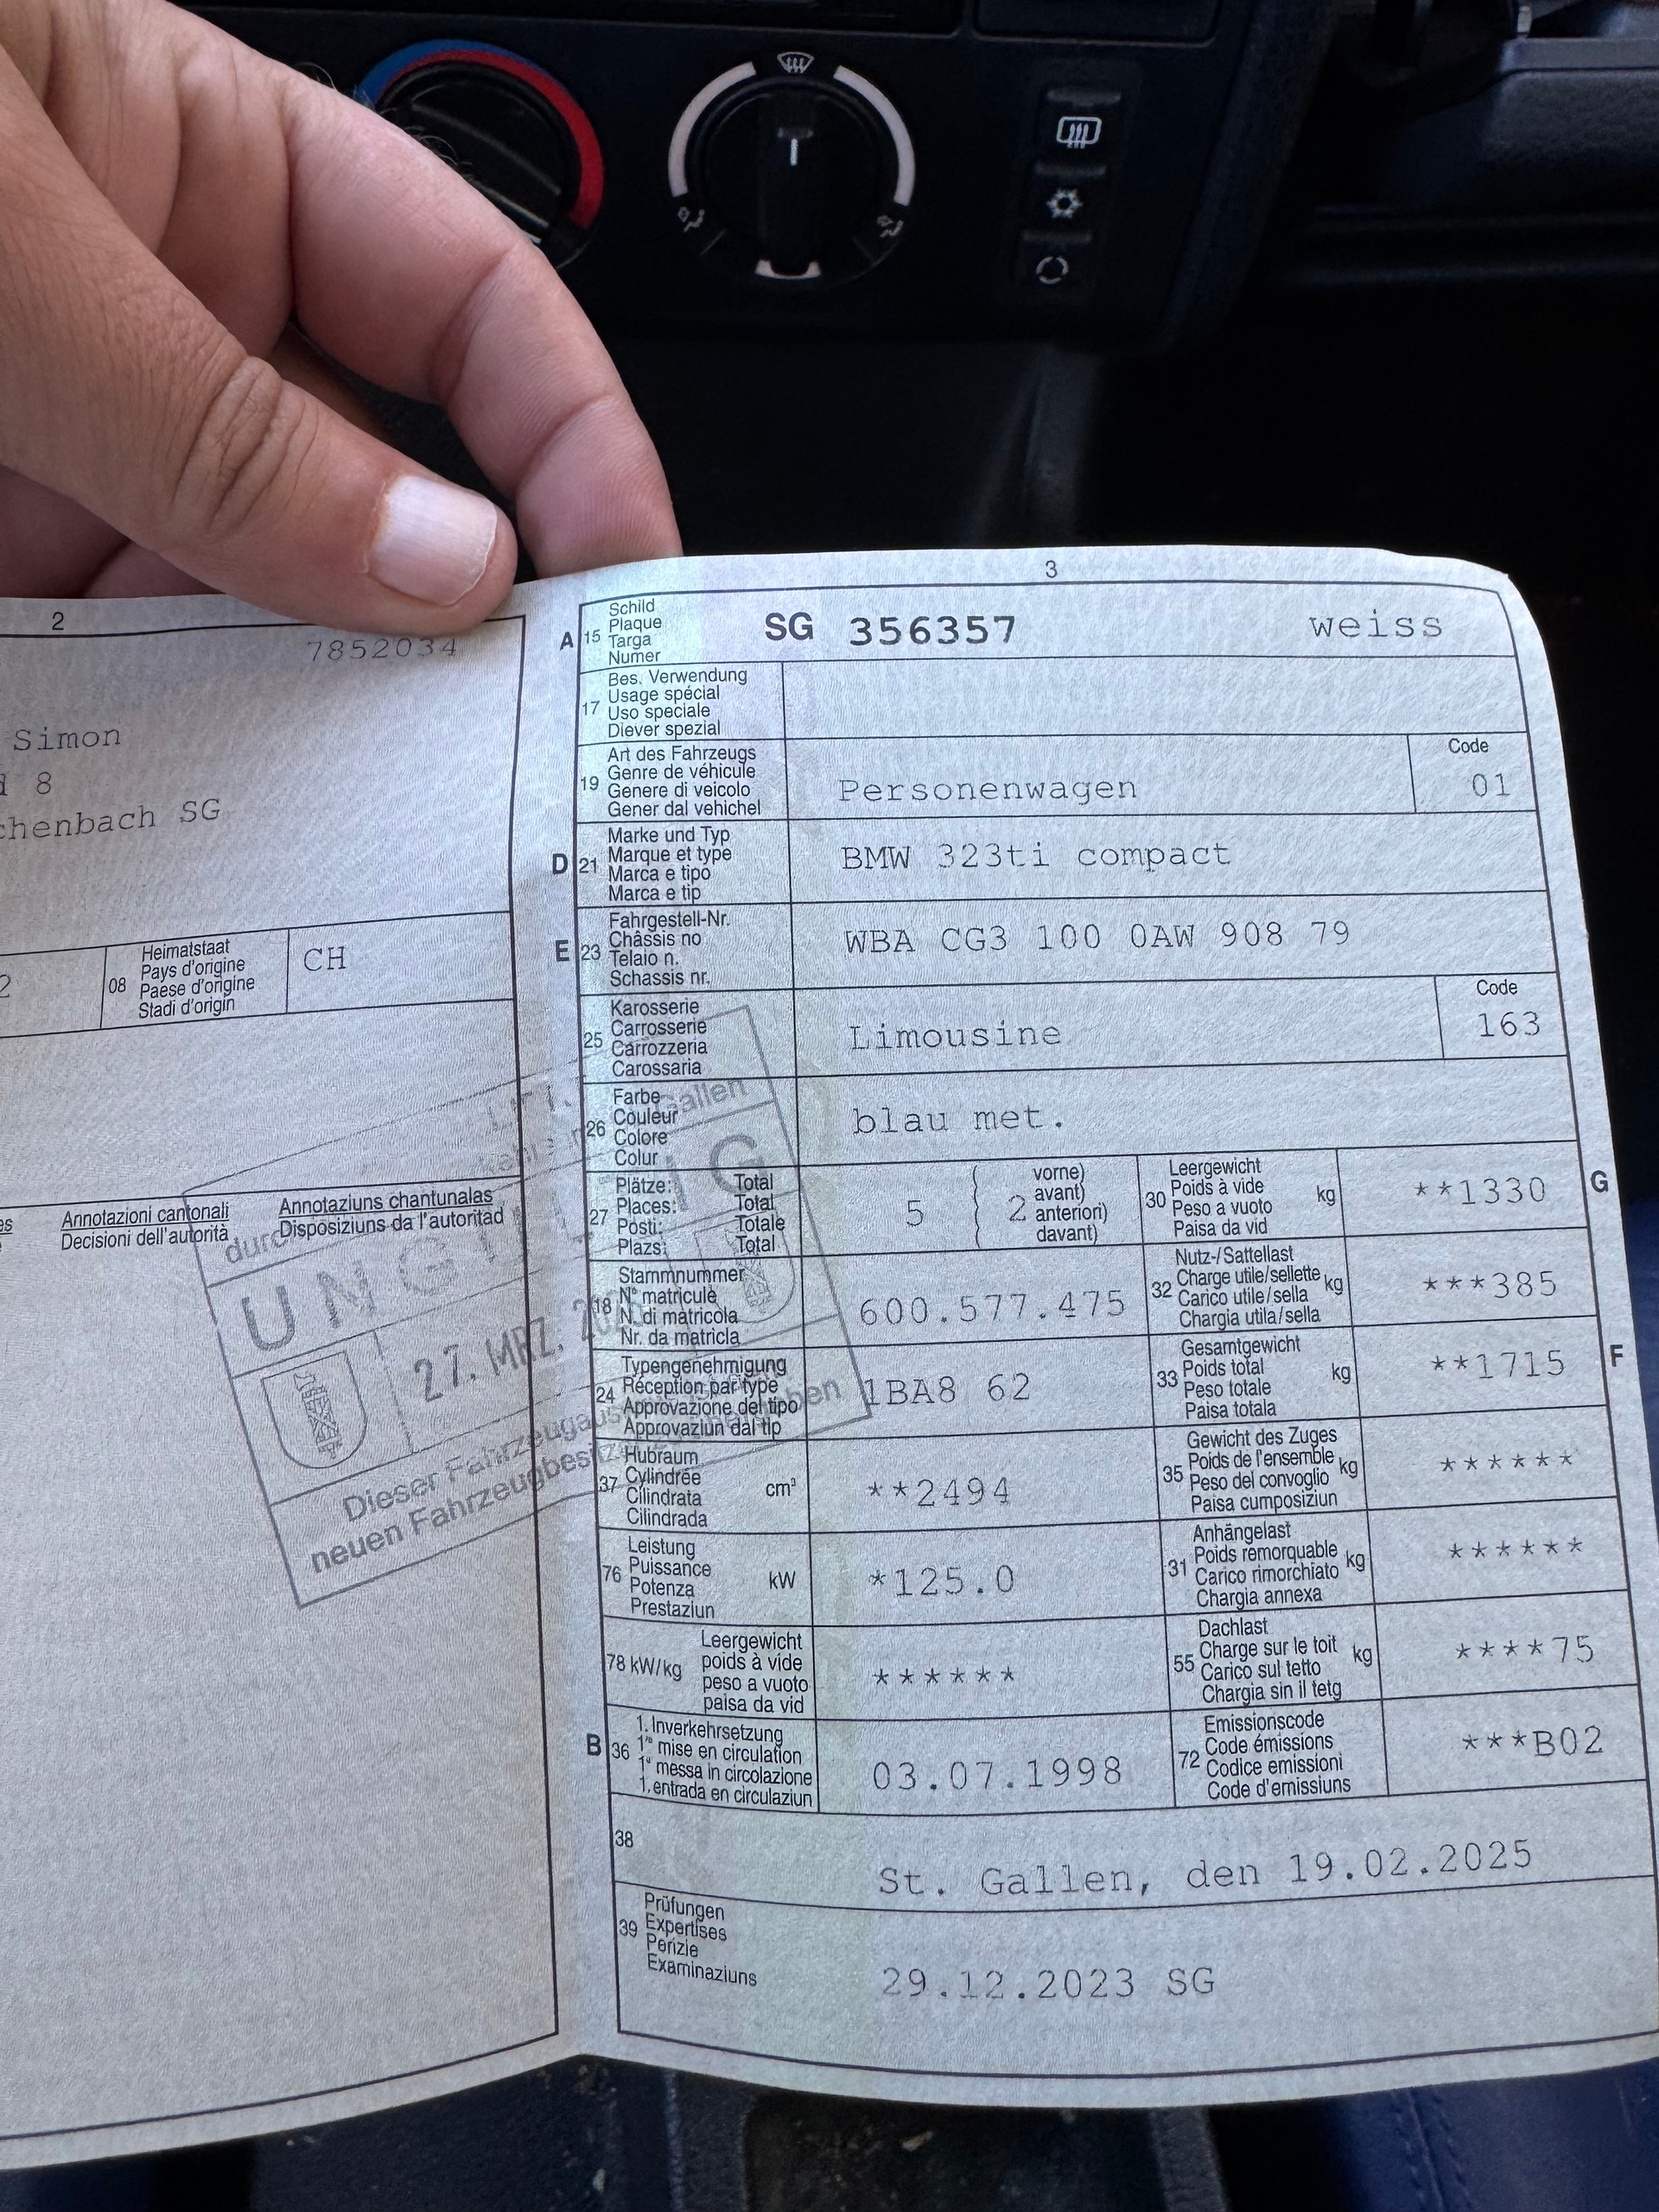 2
7852034
Simon
8
chenbach SG
08 Heimatstaat
Pays d'origine
Paese d'origine
Stadi d'origin
CH
Annotazioni cantonali
Decisioni dell'autorità
Annotaziuns chantunalas
Disposiziuns da l'autoritad
27. MRZ.
Dieser
neuen
3
A 15 Schild
Plaque
Targa
Numer
SG 356357 weiss
17 Bes. Verwendung
Usage spécial
Uso speciale
Diever spezial
19 Art des Fahrzeugs
Genre de véhicule
Genere di veicolo
Gener dal vehichel
Personenwagen
Code
01
D 21 Marke und Typ
Marque et type
Marca e tipo
Marca e tip
BMW 323ti compact
E 23 Fahrgestell-Nr.
Châssis no
Telaio n.
Schassis nr.
WBA CG3 100 0AW 908 79
25 Karosserie
Carrosserie
Carrozzeria
Carossaria
Limousine
Code
163
26 Farbe
Couleur
Colore
Colur
blau met.
27 Plätze: Total
Places: Total
Posti: Totale
Plazs: Total
5
2
vorne)
avant)
anteriori)
davant)
30 Leergewicht
Poids à vide
Peso a vuoto
Paisa da vid
kg
**1330
G
18 Stammnummer
N° matricule
N. di matricola
Nr. da matricla
600.577.475
32 Nutz-/Sattellast
Charge utile/sellette
Carico utile/sella
Chargia utila/sella
kg
***385
24 Typengenehmigung
Réception par type
Approvazione del tipo
Approvaziun dal tip
1BA8 62
33 Gesamtgewicht
Poids total
Peso totale
Paisa totala
kg
**1715
F
37 Hubraum
Cylindrée
Cilindrata
Cilindrada
cm³
**2494
35 Gewicht des Zuges
Poids de l'ensemble
Peso del convoglio
Paisa cumposiziun
kg
******
76 Leistung
Puissance
Potenza
Prestaziun
kW
*125.0
31 Anhängelast
Poids remorquable
Carico rimorchiato
Chargia annexa
kg
******
78 kW/kg
Leergewicht
poids à vide
peso a vuoto
paisa da vid
******
55 Dachlast
Charge sur le toit
Carico sul tetto
Chargia sin il tetg
kg
****75
B 36 1. Inverkehrsetzung
1re mise en circulation
1a messa in circolazione
1. entrada en circulaziun
03.07.1998
72 Emissionscode
Code émissions
Codice emissioni
Code d'emissiuns
***B02
38
St. Gallen, den 19.02.2025
39 Prüfungen
Expertises
Perizie
Examinaziuns
29.12.2023 SG